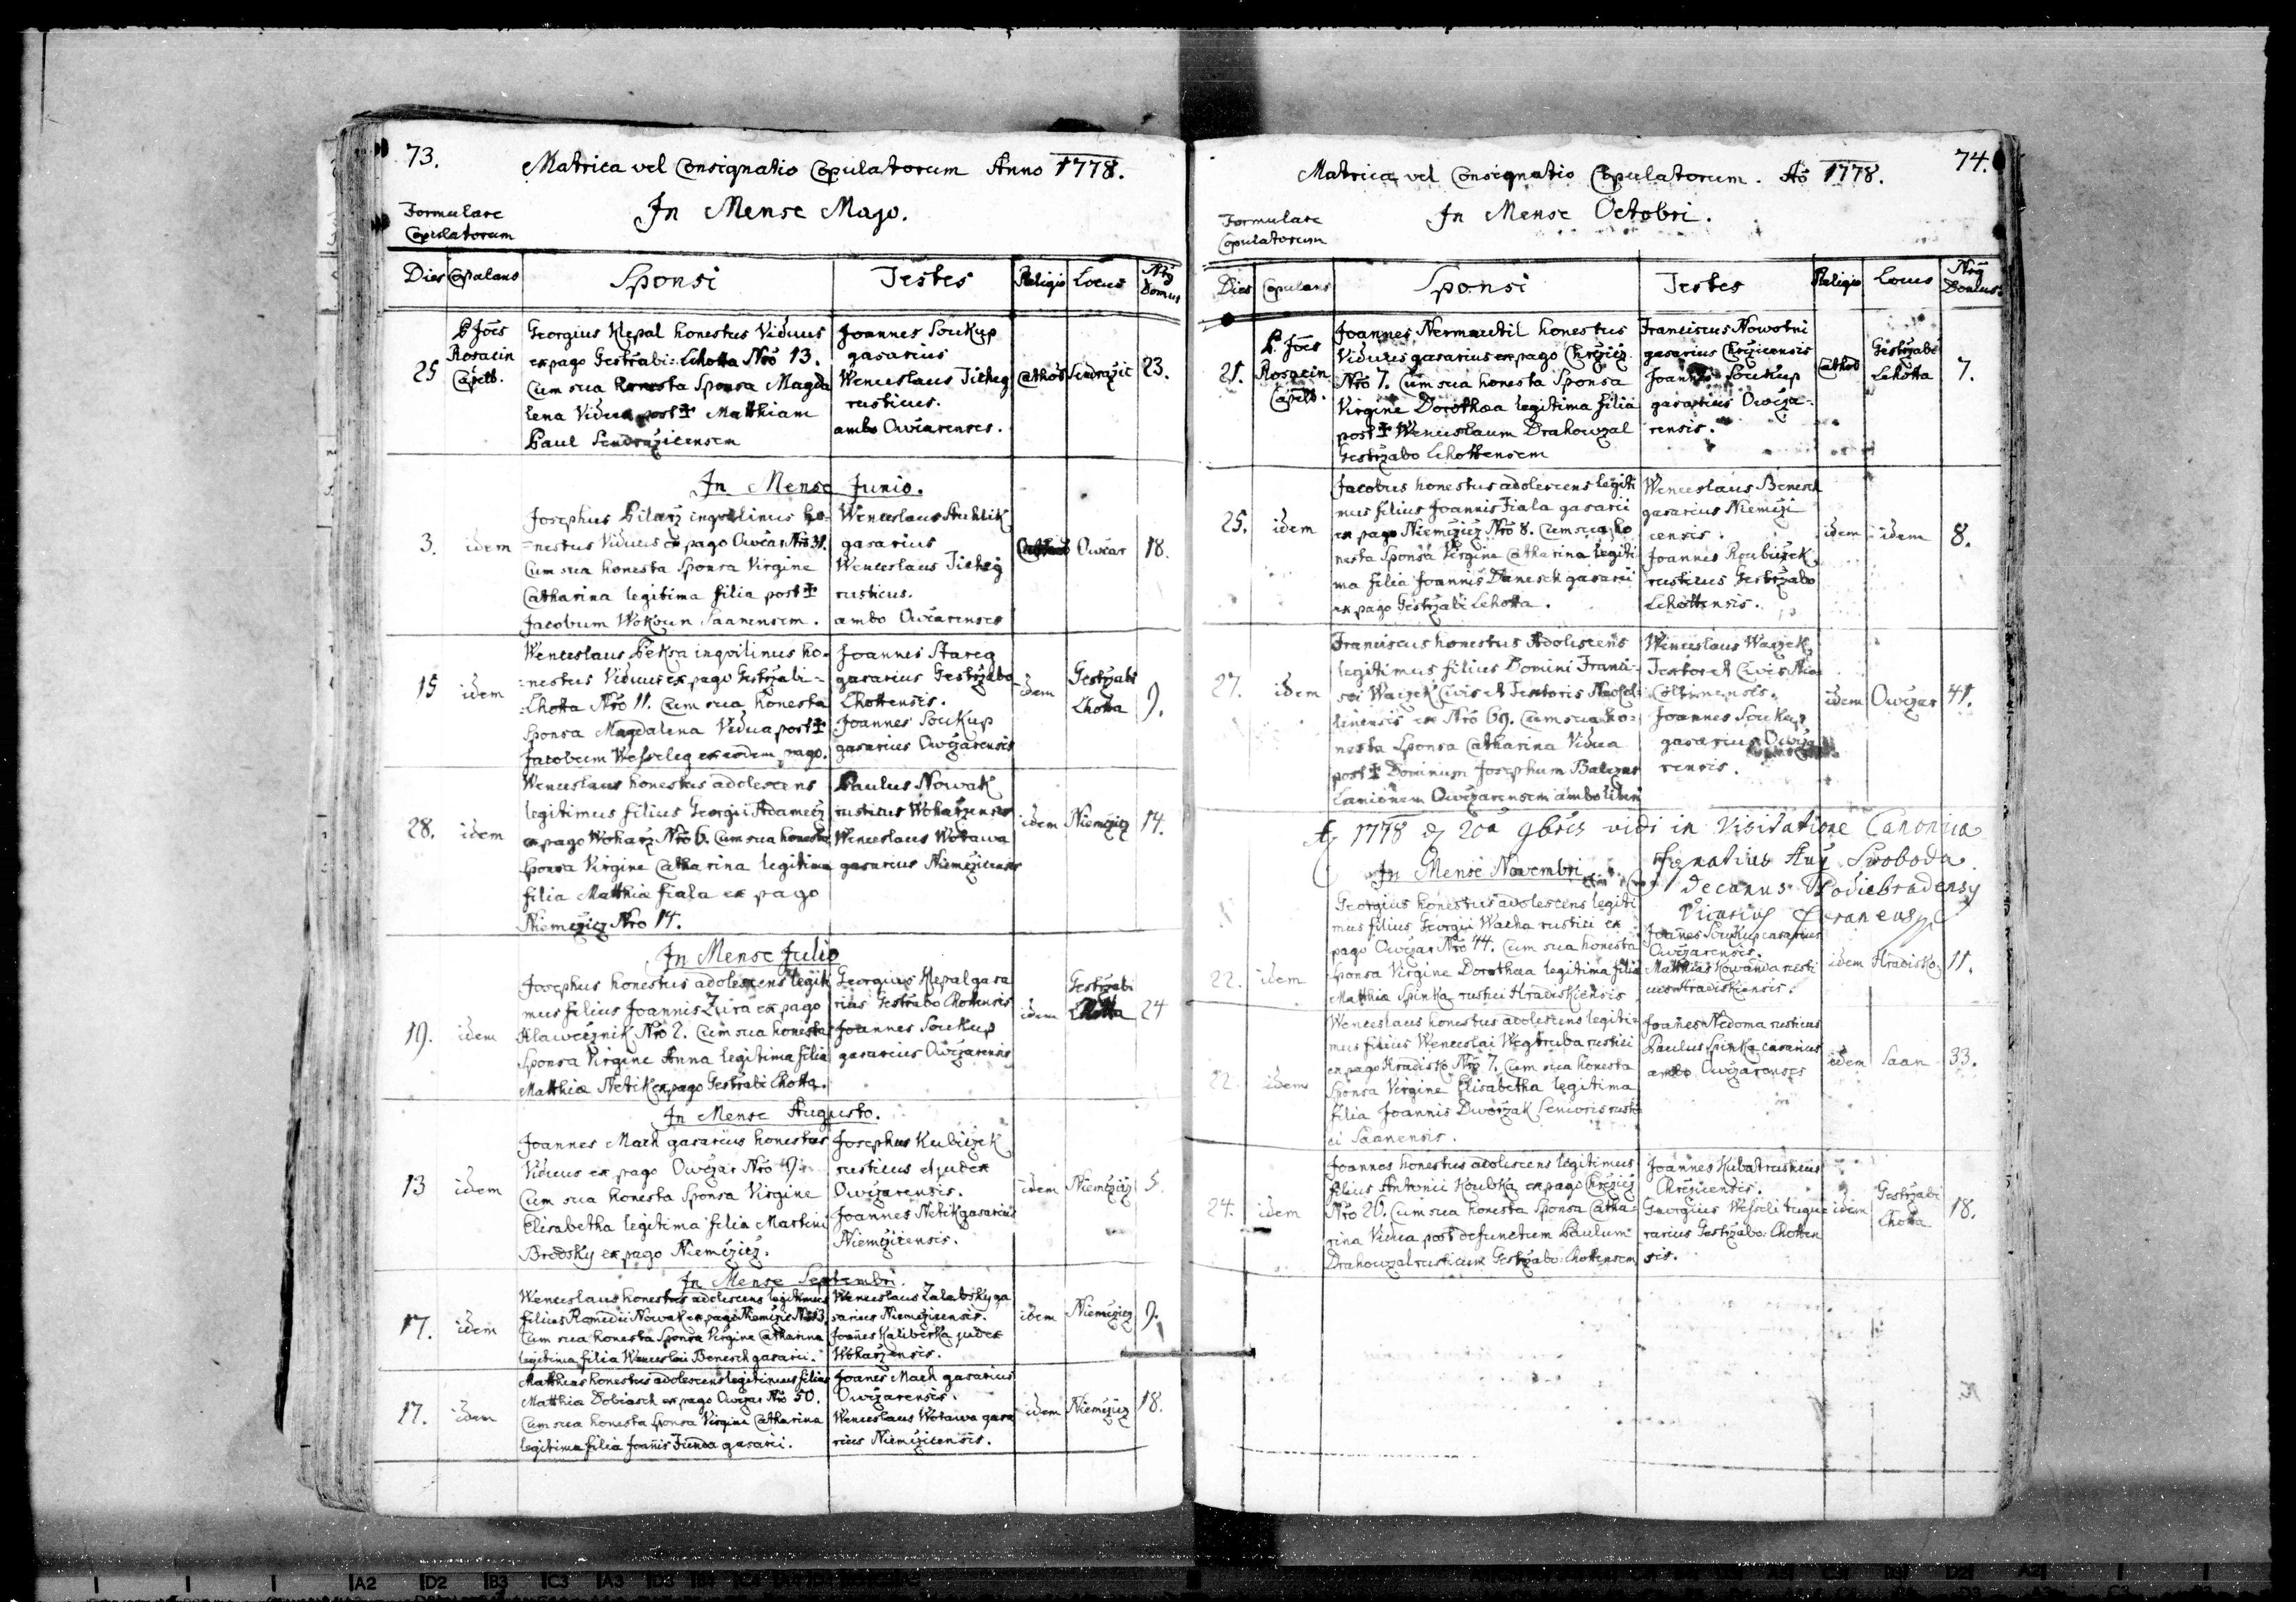 73.
Matrica vel Consignatio Copulatorum Anno 1778.
In Mense Majo.
Formulare
Copulatorum
Dies Copulans Sponsi Testes Religio Locus Nrŭs Domus
25
P. Joes
Rosacin
Capell.
Georgius Klepal honestus Viduus
ex pago Gestrabi: Lhotta Nrō 13.
Cum sua honesta Sponsa Magda
lena Vidua post ✝ Matthiam
Paul Sendražicensem
Joannes Soukup
gasarius
Wenceslaus Ticheg
rusticus.
ambo Owčarenses.
Cathol Sendražic 23.
In Mense Junio.
3. idem
Josephus Pilarz inquilinus ho-
=nestus Viduus ex pago Owčar Nrō 31.
Cum sua honesta Sponsa Virgine
Catharina legitima filia post ✝
Jacobum Wokoun Saanensem.
Wenceslaus Stuhlik
gasarius
Wenceslaus Ticheg
rusticus.
ambo Owčarenses
Owčar 18.
15 idem
Wenceslaus Pekra inquilinus ho-
=nestus Viduus ex pago Gestržabi=
=Lhotta Nrō 11. Cum sua honesta
Sponsa Magdalena Vidua post ✝
Jacobum Wesseleg ex eodem pago.
Joannes Stareg
gasarius Gestržabo
Lhottensis.
Joannes Soukup
gasarius Owčžarensis
idem
Gestržabi
Lhotta
9.
28. idem
Wenceslaus honestus adolescens
legitimus filius Georgii Adamecz
ex pago Wokarz Nrō 6. Cum sua honesta
Sponsa Virgine Catharina legitima
filia Matthiæ fiala ex pago
Niemčžicz Nro 14.
Paulus Nowak
rusticus Wokarzensis
Wenceslaus Wotawa
gasarius Niemčžicensis
idem Niemčžicz 14.
In Mense Julio
19. idem
Josephus honestus adolescens legiti
mus filius Joannis Zura ex pago
Hlawečznik Nrō 2. Cum sua honesta
Sponsa Virgine Anna legitima filia
Matthiæ Netik ex pago Gestrabi Lhotta.
Georgius Klepal gasa
rius Gestrabo Lhottensis
Joannes Soukup
gasarius Owčžarensis
idem
Gestržabi
Lhotta
24
In Mense Augusto.
13 idem
Joannes Mach gasarius honestus
Viduus ex pago Owčžar Nrō 9.
Cum sua honesta Sponsa Virgine
Elisabetha legitima filia Martini
Brodsky ex pago Niemčžicz.
Josephus Kubiczek
rusticus et judex
Owčžarensis.
Joannes Netik gasarius
Niemčžicensis.
idem Niemčžicz 5.
In Mense Septembri.
17. idem
Wenceslaus honestus adolescens legitimus
filius Romedii Nowak ex pago Niemčžic Nrō 13.
Cum sua honesta Sponsa Virgine Catharina
legitima filia Wenceslai Benesch gasarii.
Wenceslaus Zalabsky ga
sarius Niemčžicensis.
Joañes Kaliberka judex
Wokarzensis.
idem Niemčžicz 9.
17. idem
Matthias honestus adolescens legitimus filius
Matthiæ Dobiasch ex pago Owčžar Nrō 50.
Cum sua honesta Sponsa Virgine Catharina
legitima filia Joañis Funda gasarii.
Joañes Mach gasarius
Owčžarensis.
Wenceslaus Wotawa gasa
rius Niemčžicensis.
idem Niemčžicz 18.
74.
Matrica vel Consignatio Copulatorum. Aō 1778.
In Mense Octobri.
Formulare
Copulatorum
Dies Copulans Sponsi Testes Religio Locus Nrŭs Domus
21.
P. Joes
Rosacin
Capell.
Joannes Nermautil honestus
Viduus gasarius ex pago Chržicz
Nrō 7. Cum sua honesta Sponsa
Virgine Dorothæa legitima filia
post ✝ Wenceslaum Drahowzal
Gestržabo Lhottensem
Franciscus Nowotni
gasarius Chržicensis
Joannes Soukup
gasarius Owčža=
rensis.
Cathol
Gestržabi
Lhotta
7.
25. idem
Jacobus honestus adolescens legiti
mus filius Joannis Fiala gasarii
ex pago Niemčžicz Nrō 8. Cum sua ho
nesta Sponsa Virgine Catharina legiti
ma filia Joannis Danesch gasarii
ex pago Gestržabi Lhotta.
Wenceslaus Benesch
gasarius Niemčži
censis.
Joannes Roubiczek
rusticus Gestržabo
Lhottensis.
idem idem 8.
27. idem
Franciscus honestus Adolescens
legitimus filius Domini Franci=
sci Waczek Civis et Textoris Neocol=
linensis ex Nrō 69. Cum sua ho=
nesta Sponsa Catharina Vidua
post ✝ Dominum Josephum
Lanionem Owčžarensem ambo liberi
Wenceslaus Waczek
Textor et Civis Neo
Collinensis.
Joannes Soukup
gasarius Owčža
rensis.
idem Owčžar 41.
A 1778 d 20a 9bris vidi in Visitatione Canonica
Ignatius Aug Swoboda
Decanus Podiebradensis
Vicarius Foraneus
In Mense Novembri
22. idem
Georgius honestus adolescens legiti
mus filius Georgii Wacha rustici ex
pago Owčžar Nrō 44. Cum sua honesta
Sponsa Virgine Dorothæa legitima filia
Matthiæ Spinka rustici Hradiskiensis
Joañes Soukup casarius
Owčžarensis.
Matthias Kowanda rusti
cus Hradiskiensis.
idem Hradisko 11.
22. idem
Wenceslaus honestus adolescens legiti=
mus filius Wenceslai Wegtruba rustici
ex pago Hradisko Nrō 7. Cum sua honesta
Sponsa Virgine Elisabetha legitima
filia Joannis Dworžak Senioris rusti
ci Saanensis.
Joañes Nedoma rusticus
Paulus Spinka casarius
ambo Owčžarenses
idem Saan 33.
24. idem
Joannes honestus adolescens legitimus
filius Antonii Koubka ex pago Chržicz
Nrō 26. Cum sua honesta Sponsa Catha=
rina Vidua post defunctum Paulum
Drahowzal rusticum Gestržabo: Lhottensem
Joannes Kubat rusticus
Chržicensis.
Georgius Wesseli tugu=
rarius Gestržabo: Lhotten
sis.
idem
Gestržabi
Lhotta
18.